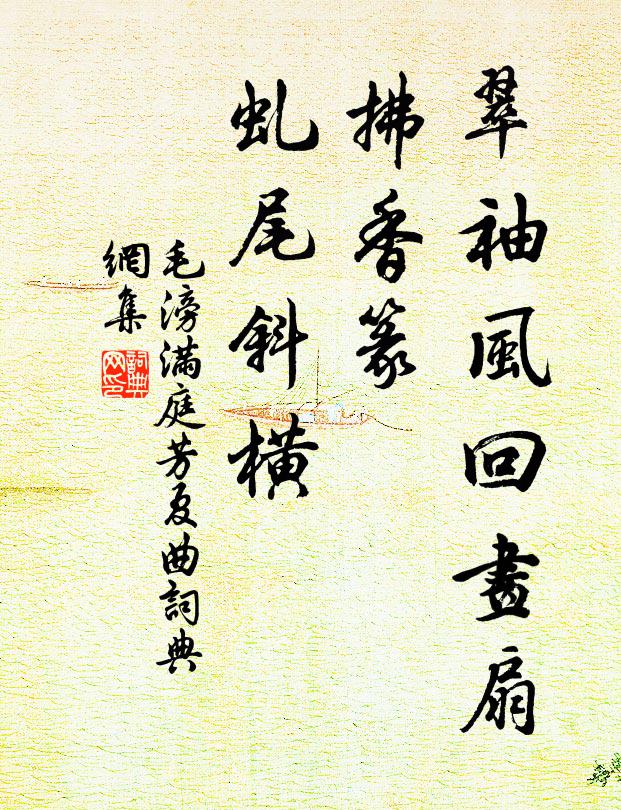 翠袖風回畫扇
拂香篆
虬尾斜橫
毛滂滿庭芳夏曲詞典
網集
詞典网印